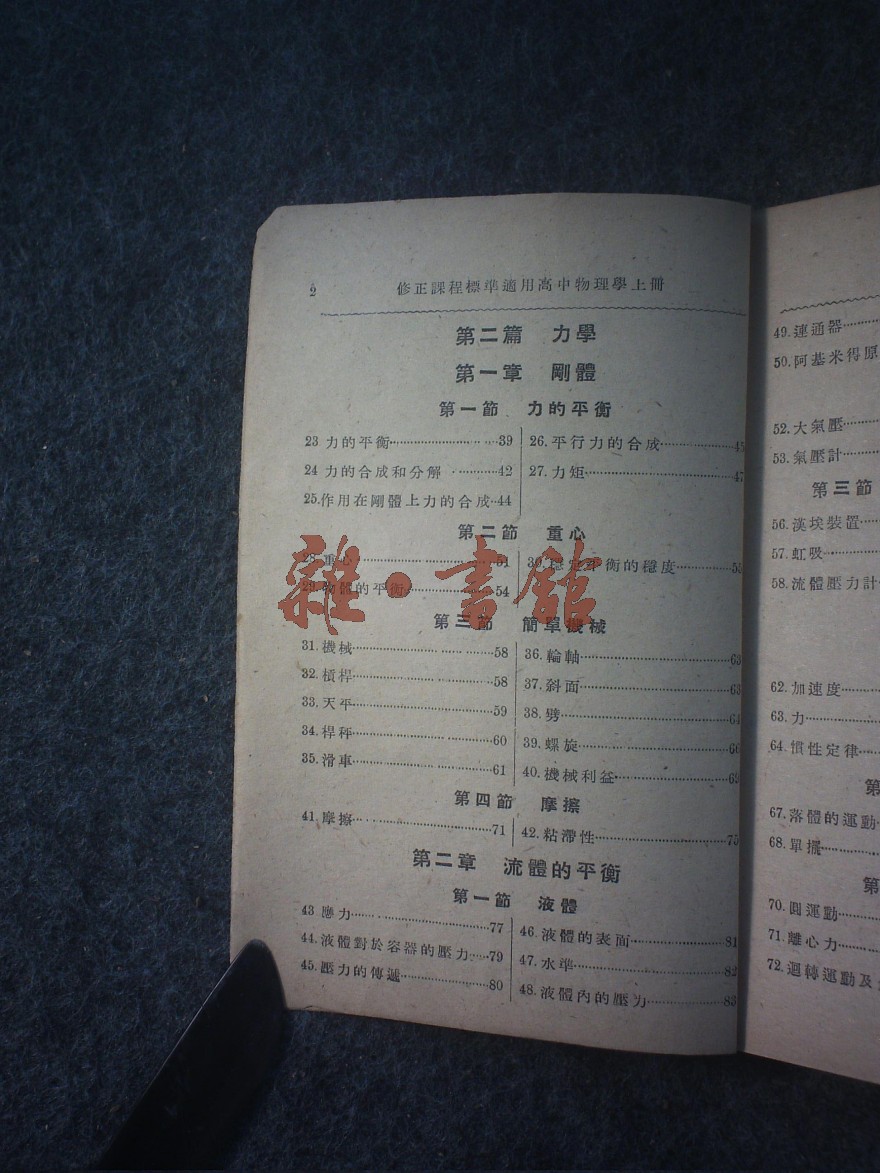 2 修正課程標準適用高中物理學上冊
第二篇 力學
第一章 剛體
第一節 力的平衡
23 力的平衡 39
24 力的合成和分解 42
25.作用在剛體上力的合成 44
26.平行力的合成 45
27.力矩 47
第二節 重心
28.重心 51
29.物體的平衡 54
30.穩定平衡的穩度 55
雜·書館
第三節 簡單機械
31.機械 58
32.槓桿 58
33.天平 59
34.桿秤 60
35.滑車 61
36.輪軸 63
37.斜面 63
38.劈 64
39.螺旋 66
40.機械利益 69
第四節 摩擦
41.摩擦 71
42.粘滯性 75
第二章 流體的平衡
第一節 液體
43 應力 77
44.液體對於容器的壓力 79
45.壓力的傳遞 80
46.液體的表面 81
47.水準 82
48.液體內的壓力 83
49.連通器
50.阿基米得原
52.大氣壓
53.氣壓計
第三節
56.漢埃裝置
57.虹吸
58.流體壓力計
62.加速度
63.力
64.慣性定律
第
67.落體的運動
68.單擺
第
70.圓運動
71.離心力
72.迴轉運動及